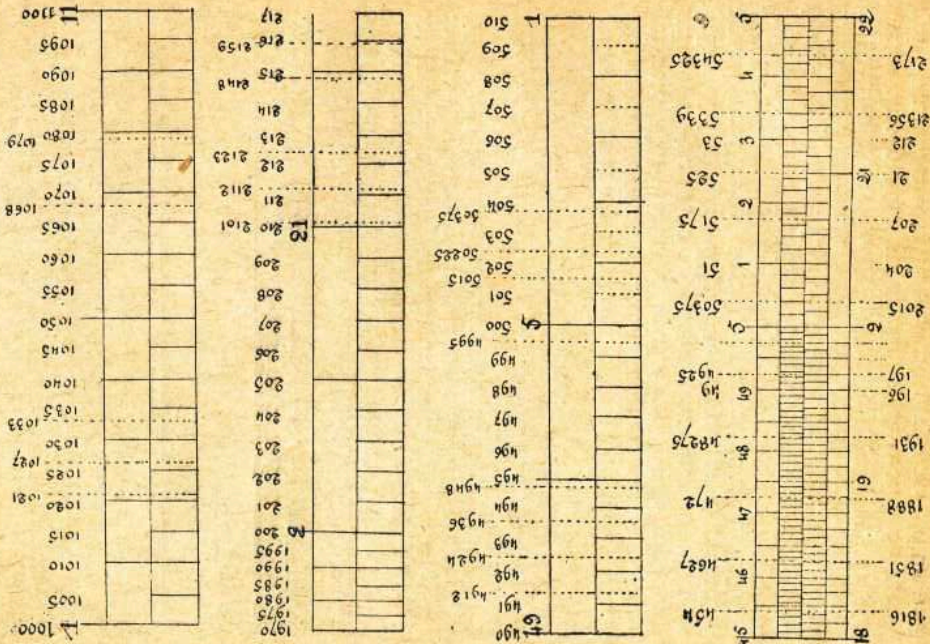 1100 11
1095
1090
1085
1080
1079
1075
1070
1068
1065
1060
1055
1050
1045
1040
1035
1033
1030
1027
1025
1021
1020
1015
1010
1005
1000 1
217
216
2159
215
2148
214
213
2123
212
2112
211
210 21
2101
209
208
207
206
205
204
203
202
201
200 2
1995
1990
1985
1980
1975
1970
510 1
509
508
507
506
505
504
50375
503
50225
502
5015
501
500 5
4995
499
498
497
496
495
4948
494
4936
493
4924
492
4912
491
490 49
5 22
54325 2173
4
5339 21356
53 3 212
525 21 21
2
5175 207
51 1 204
50375 2015
5 2
4925 197
49 49 196
48275 1931
48
19
472 1888
47
4627 1851
46
454 1816
45 18